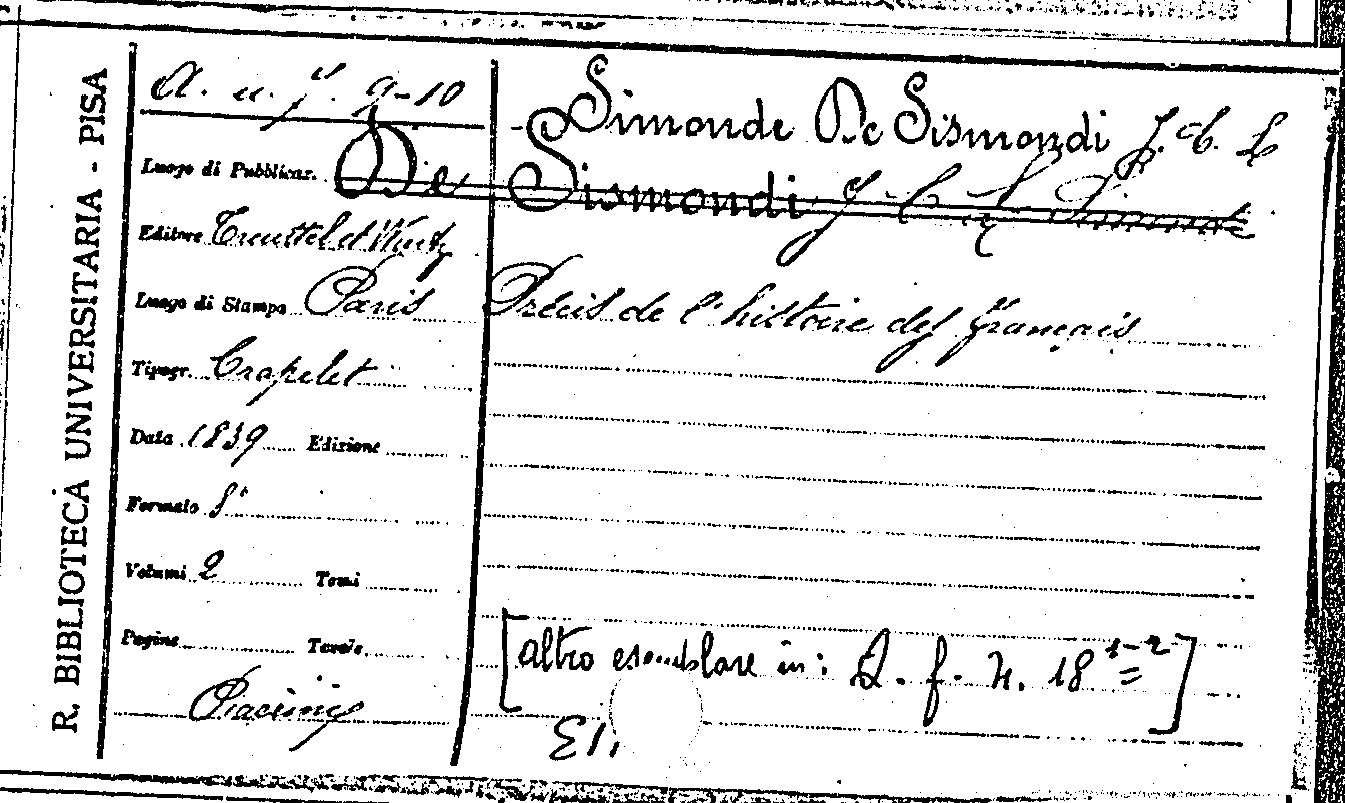 R. BIBLIOTECA UNIVERSITARIA - PISA
A. u. f. 9-10
Luogo di Pubblicaz.
Editore Treuttel et Wurtz
Luogo di Stampa Paris
Tipogr. Crapelet
Data 1839 Edizione
Formato 8°
Volumi 2 Tomi
Pagine Tavole
Simonde De Sismondi J. C. L
De Sismondi J C L Simonde
Précis de l'histoire des français
[altro esemplare in: f. 4. 18 1-2]